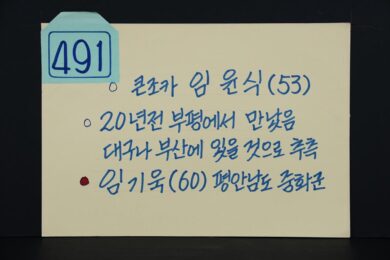 491
큰조카 임윤식(53)
20년전 부평에서 만났음
대구나 부산에 있을 것으로 추측
임기욱(60) 평안남도 중화군